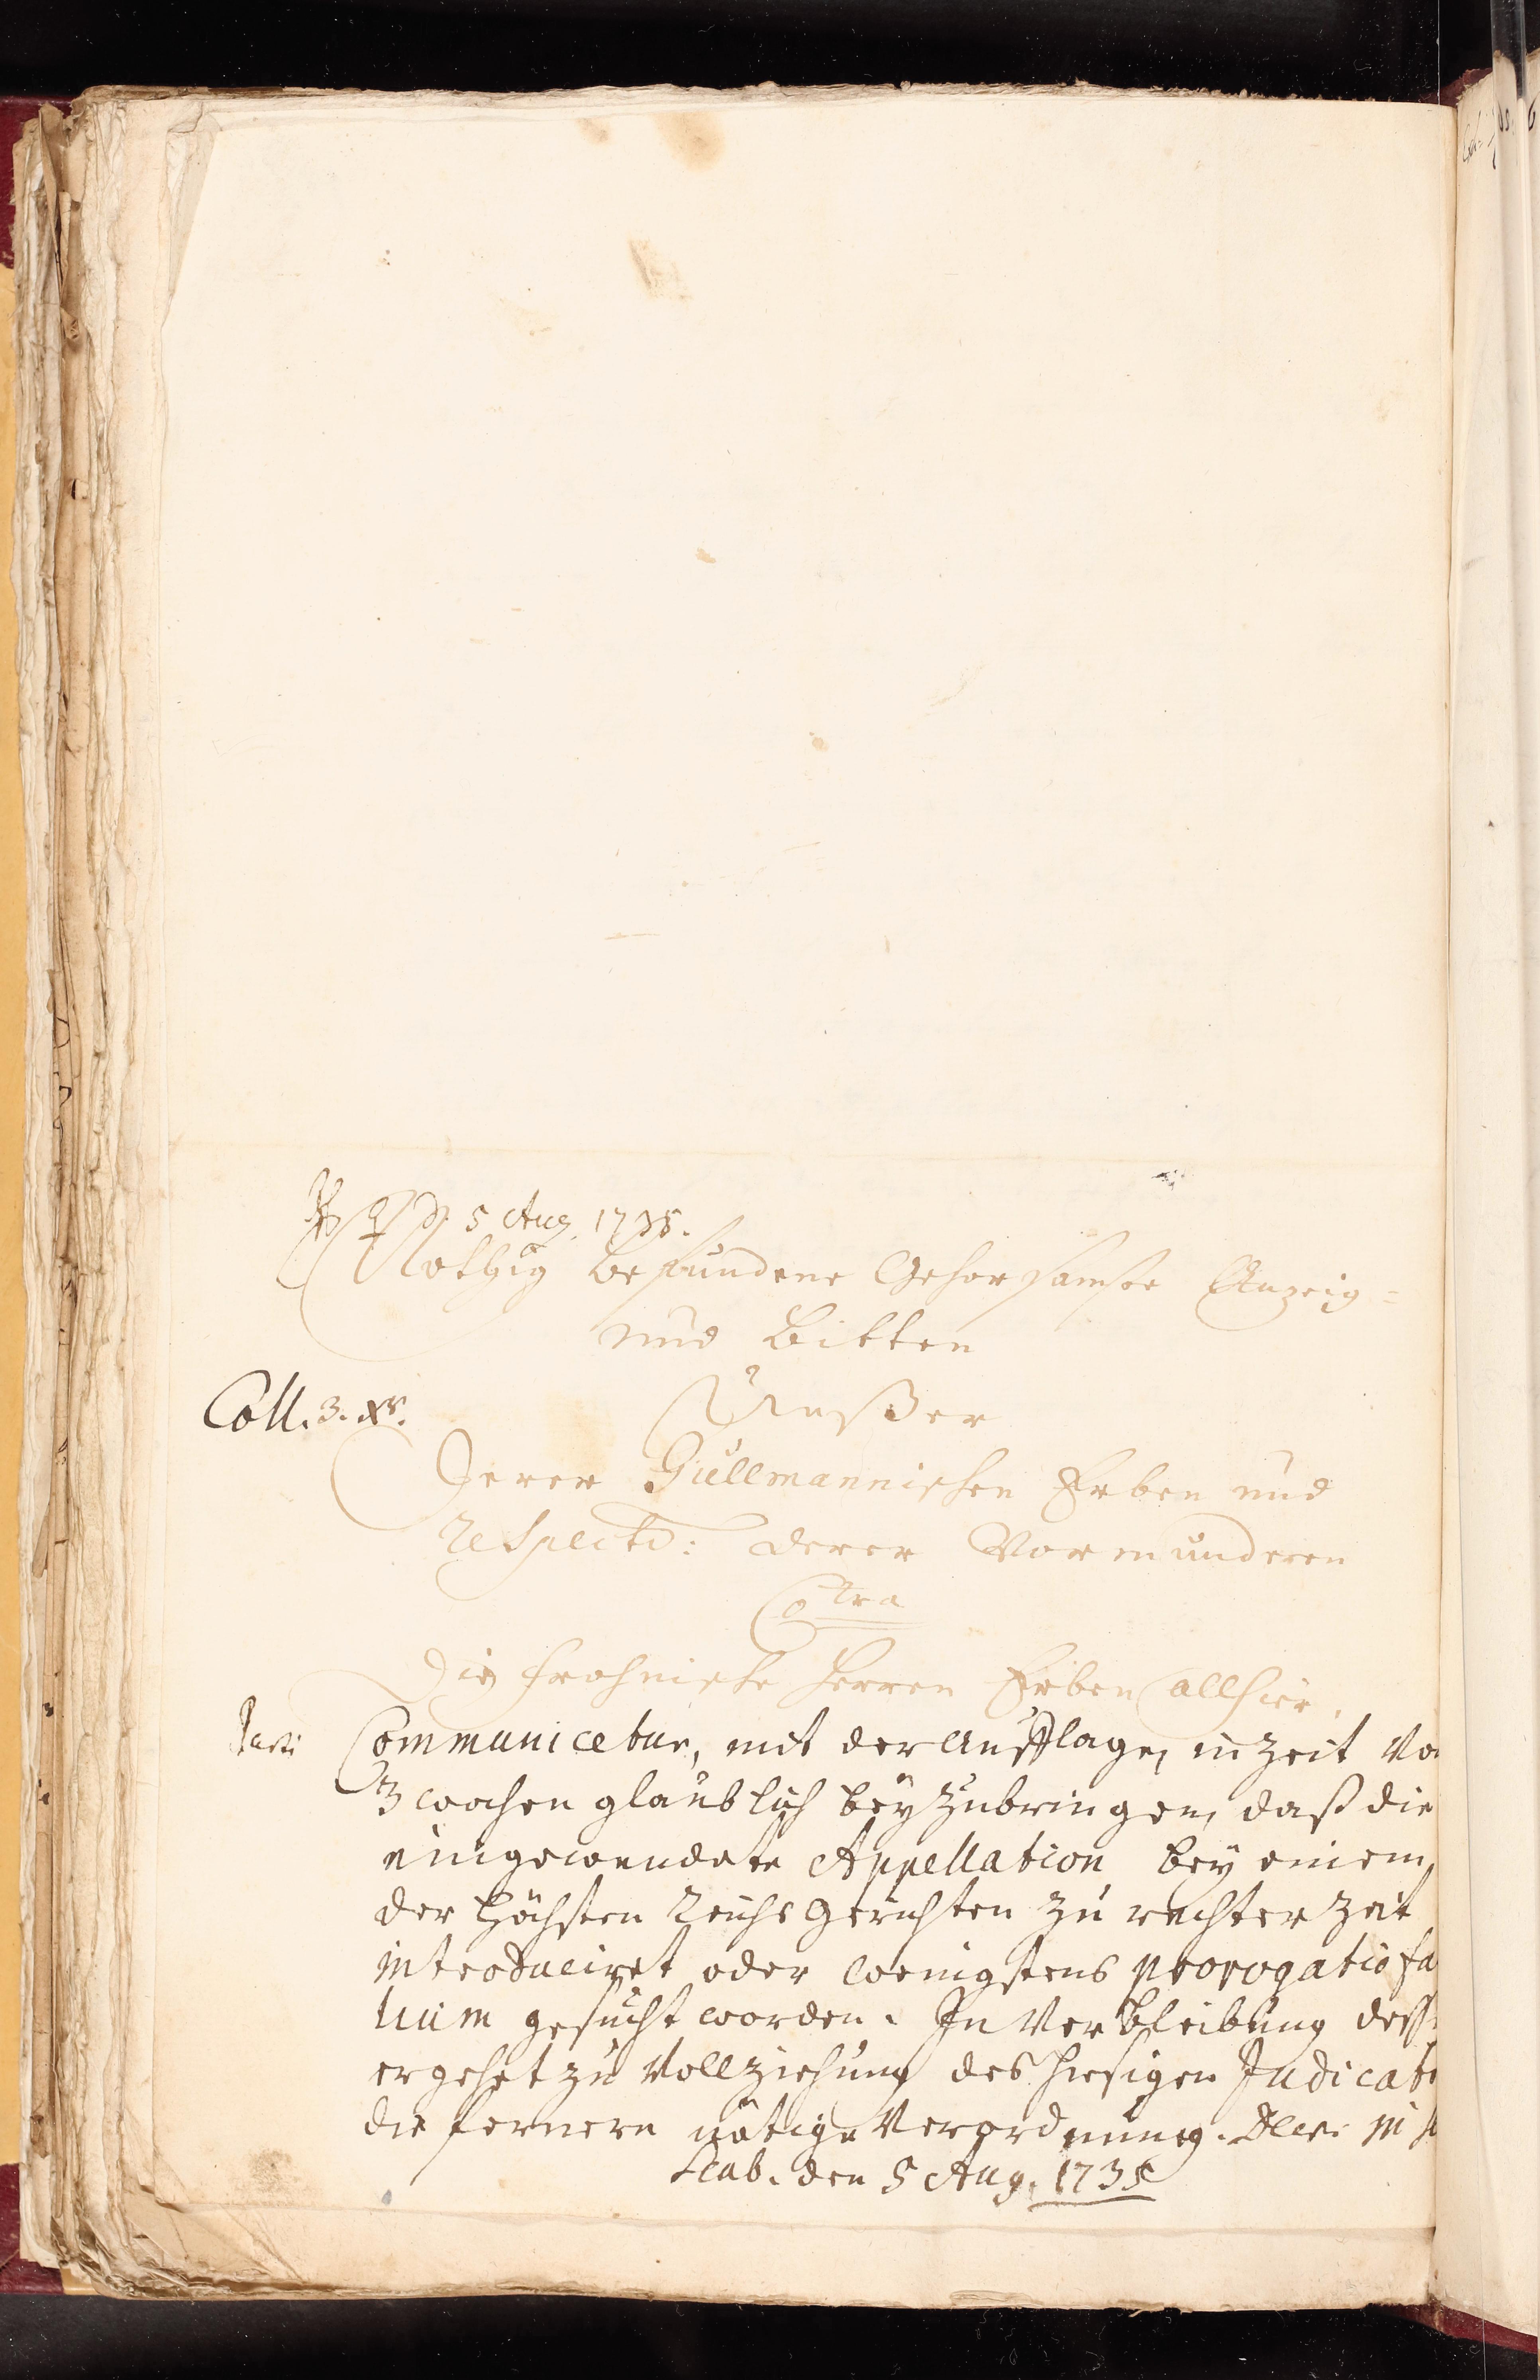 5 Aug. 1735.
Nöthig befundene Gehorsamste Anzeig=
und Bitten
Coll. 3. xr.
Unßer
Derer Güllmannischen Erben und
respectv: derer Vormünderen
Contra
Die Frohnische Herren Erben allhier.
Communicetur, mit der Aufflage, in Zeit vo
3 wochen glaublich beyzubringen, daß die
eingewendete Appellation bey einem
der Höchsten Reichs Gerichten zu rechter Zeit
introduciret oder wenigstens prorogatio fa
lium gesucht worden. In Verbleibung dess
ergehet zu Vollziehung des hiesigen Judicati
die fernere nötige Verordnung. Decr. in
Scab. den 5 Aug. 1735